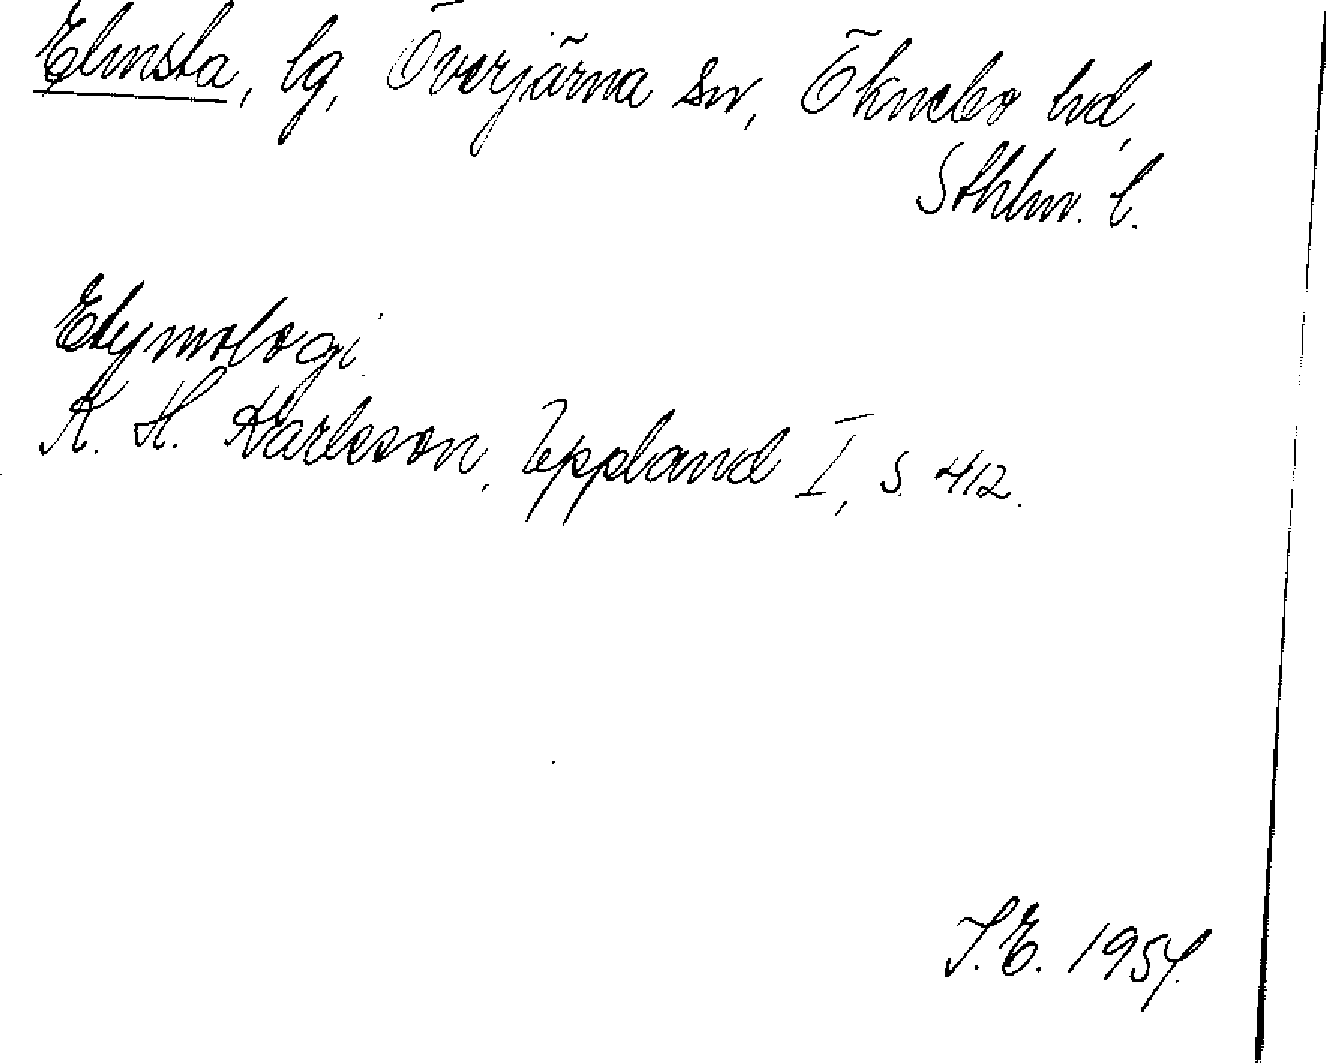 Elmsta, lg, Överjärna sn, Öknebo hd,
Sthlm. l.
Etymologi
K. H. Karlsson, Uppland I, s. 412.
J.E. 1954.